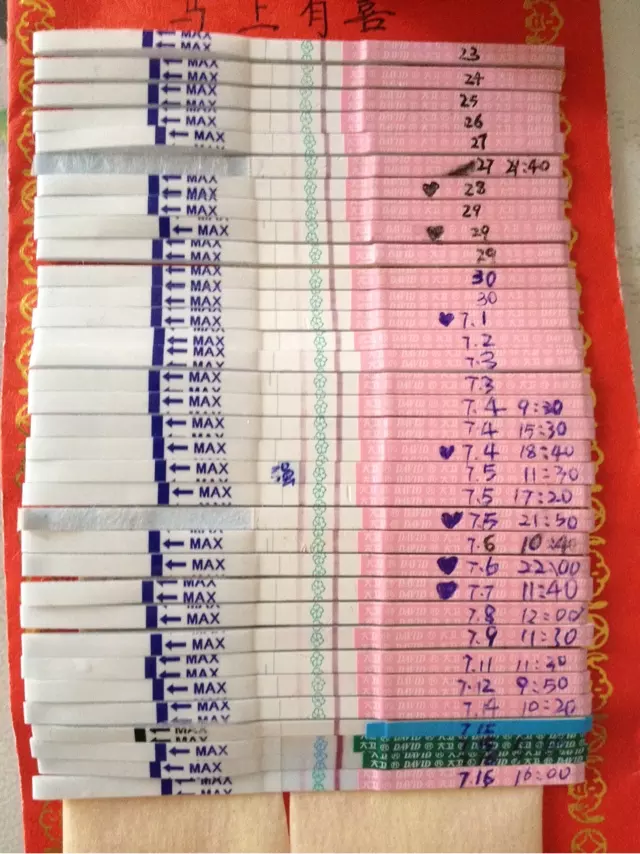 马上有喜
MAX 23
MAX 24
MAX 25
MAX 26
MAX 27
27 21:40
MAX 28
MAX 29
MAX 29
MAX 29
MAX 30
MAX 30
MAX 7.1
MAX 7.2
MAX 7.3
MAX 7.3
MAX 7.4 9:30
MAX 7.4 15:30
MAX 7.4 18:40
MAX 强 7.5 11:30
MAX 7.5 17:20
7.5 21:50
MAX 7.6 10:40
MAX 7.6 22:00
MAX 7.7 11:40
MAX 7.8 12:00
MAX 7.9 11:30
MAX 7.11 11:30
MAX 7.12 9:50
MAX 7.14 10:20
MAX 7.15
MAX 大卫 DAVID 大卫 DAVID 大卫
MAX 7.16 16:00
MAX